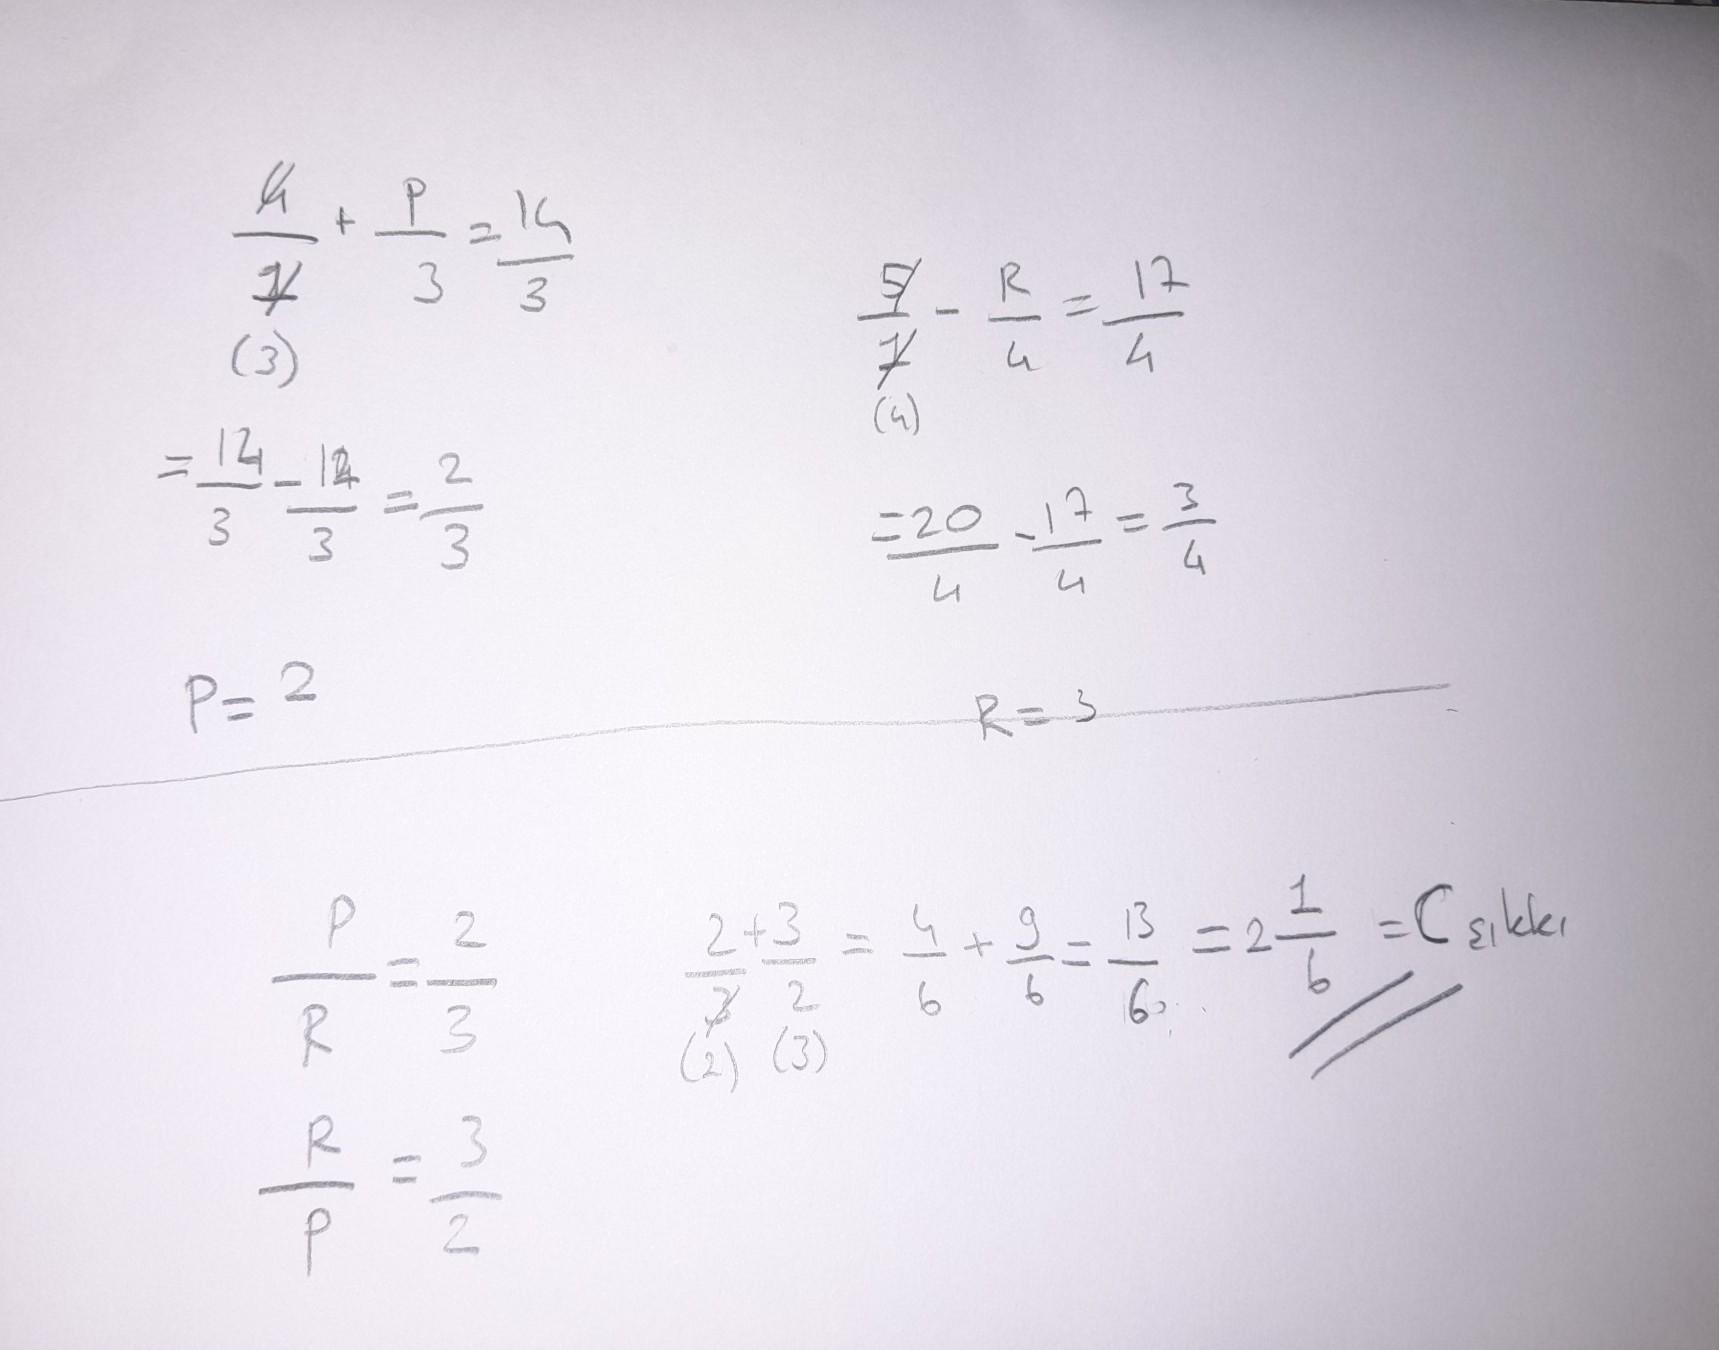 4/1 + P/3 = 14/3
(3)
= 14/3 - 12/3 = 2/3
P = 2
5/1 - R/4 = 17/4
(4)
= 20/4 - 17/4 = 3/4
R = 3
P/R = 2/3
2/3 + 3/2 = 4/6 + 9/6 = 13/6 = 2 1/6 = C şıkkı
(2) (3)
R/P = 3/2